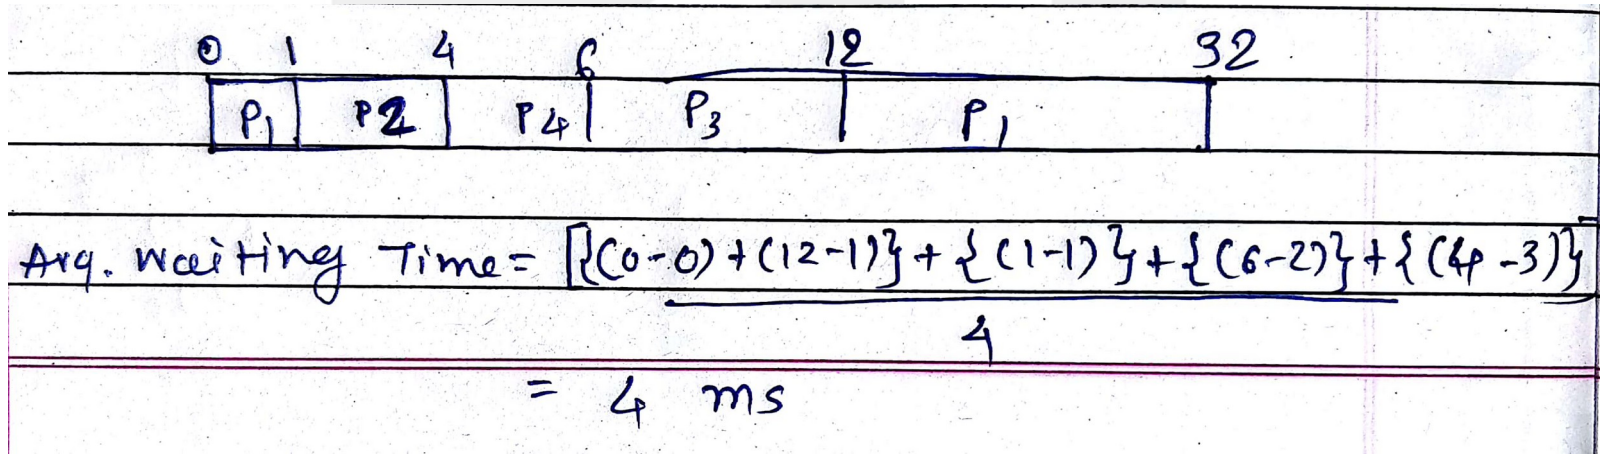 0 1 4 6 12 32
P1 P2 P4 P3 P1
Avg. Waiting Time = [{(0-0)+(12-1)}+{(1-1)}+{(6-2)}+{(4-3)}
4
= 4 ms